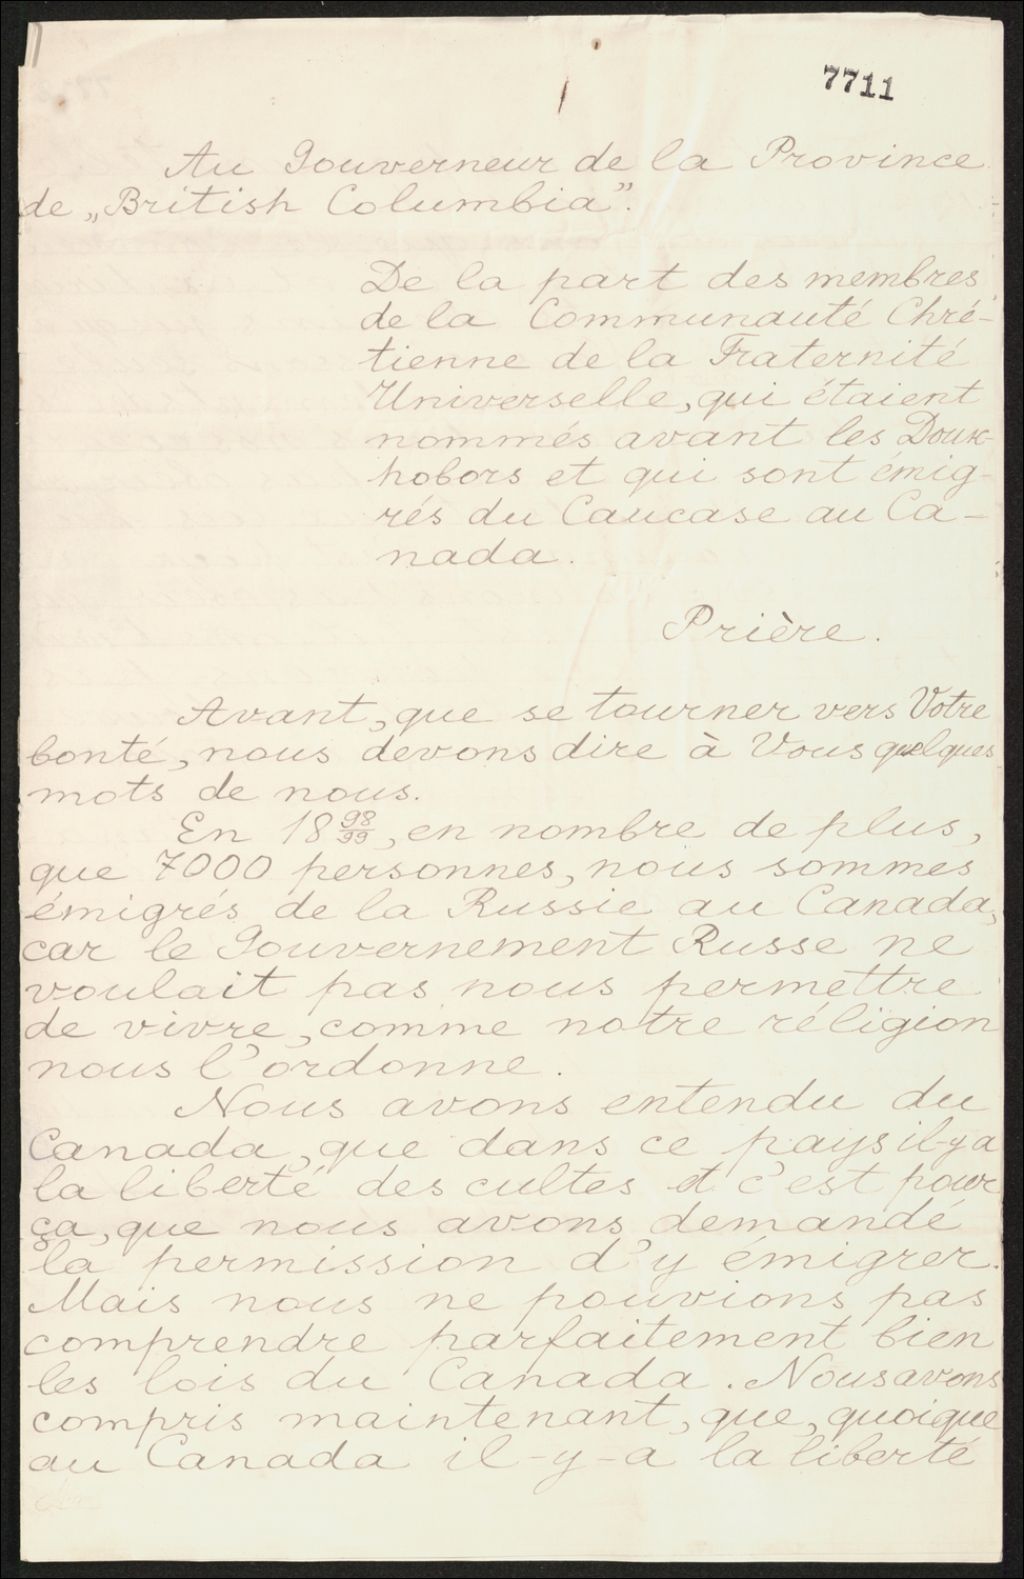 7711
Au Gouverneur de la Province
de „British Columbia”.
De la part des membres
de la Communauté Chré-
tienne de la Fraternité
Universelle, qui étaient
nommés avant les Douk-
hobors et qui sont émig-
rés du Caucase au Ca-
nada.
Prière.
Avant, que se tourner vers Votre
bonté, nous devons dire à Vous quelques
mots de nous.
En 18 98/99, en nombre de plus,
que 7000 personnes, nous sommes
émigrés de la Russie au Canada,
car le Gouvernement Russe ne
voulait pas nous permettre
de vivre, comme notre réligion
nous l'ordonne.
Nous avons entendu du
Canada, que dans ce pays il-y a
la liberté des cultes et c'est pour
ça, que nous avons demandé
la permission d'y émigrer.
Mais nous ne pouvions pas
comprendre parfaitement bien
les lois du Canada. Nous avons
compris maintenant, que, quoique
au Canada il-y-a la liberté